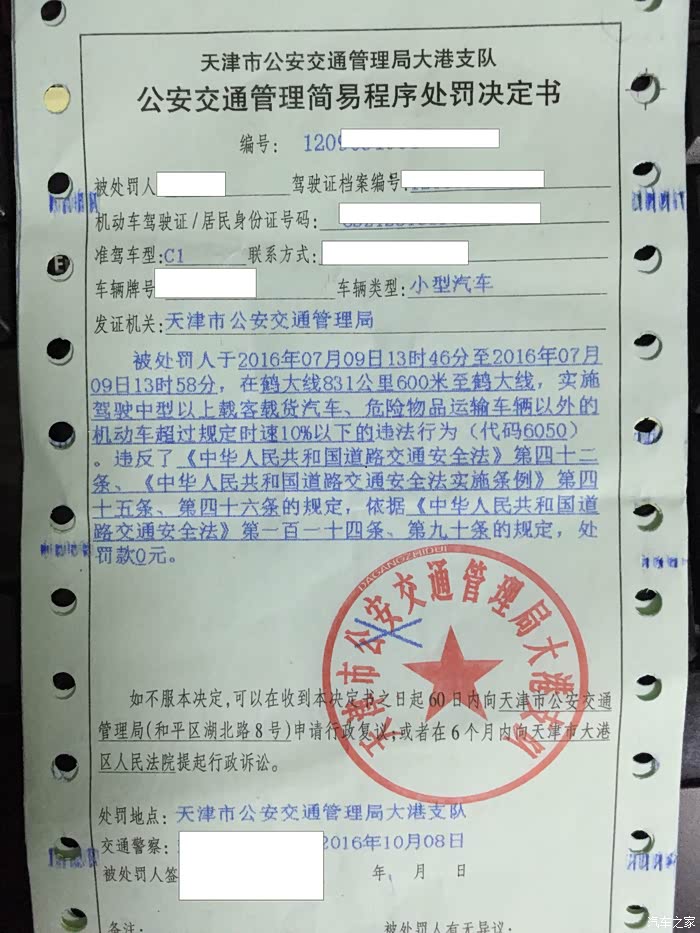 天津市公安交通管理局大港支队
公安交通管理简易程序处罚决定书
编号： 1209
被处罚人 驾驶证档案编号
机动车驾驶证/居民身份证号码：
准驾车型:C1 联系方式:
车辆牌号 车辆类型:小型汽车
发证机关:天津市公安交通管理局
被处罚人于2016年07月09日13时46分至2016年07月
09日13时58分，在鹤大线831公里600米至鹤大线，实施
驾驶中型以上载客载货汽车、危险物品运输车辆以外的
机动车超过规定时速10%以下的违法行为（代码6050）
。违反了《中华人民共和国道路交通安全法》第四十二
条、《中华人民共和国道路交通安全法实施条例》第四
十五条、第四十六条的规定，依据《中华人民共和国道
路交通安全法》第一百一十四条、第九十条的规定，处
罚款0元。
DAGANGZHIDUI
天津市公安交通管理局大港支队
如不服本决定，可以在收到本决定书之日起60日内向天津市公安交通
管理局(和平区湖北路8号)申请行政复议;或者在6个月内向天津市大港
区人民法院提起行政诉讼。
处罚地点：天津市公安交通管理局大港支队
交通警察： 2016年10月08日
被处罚人签 年 月 日
备注: 被处罚人有无异议:
汽车之家